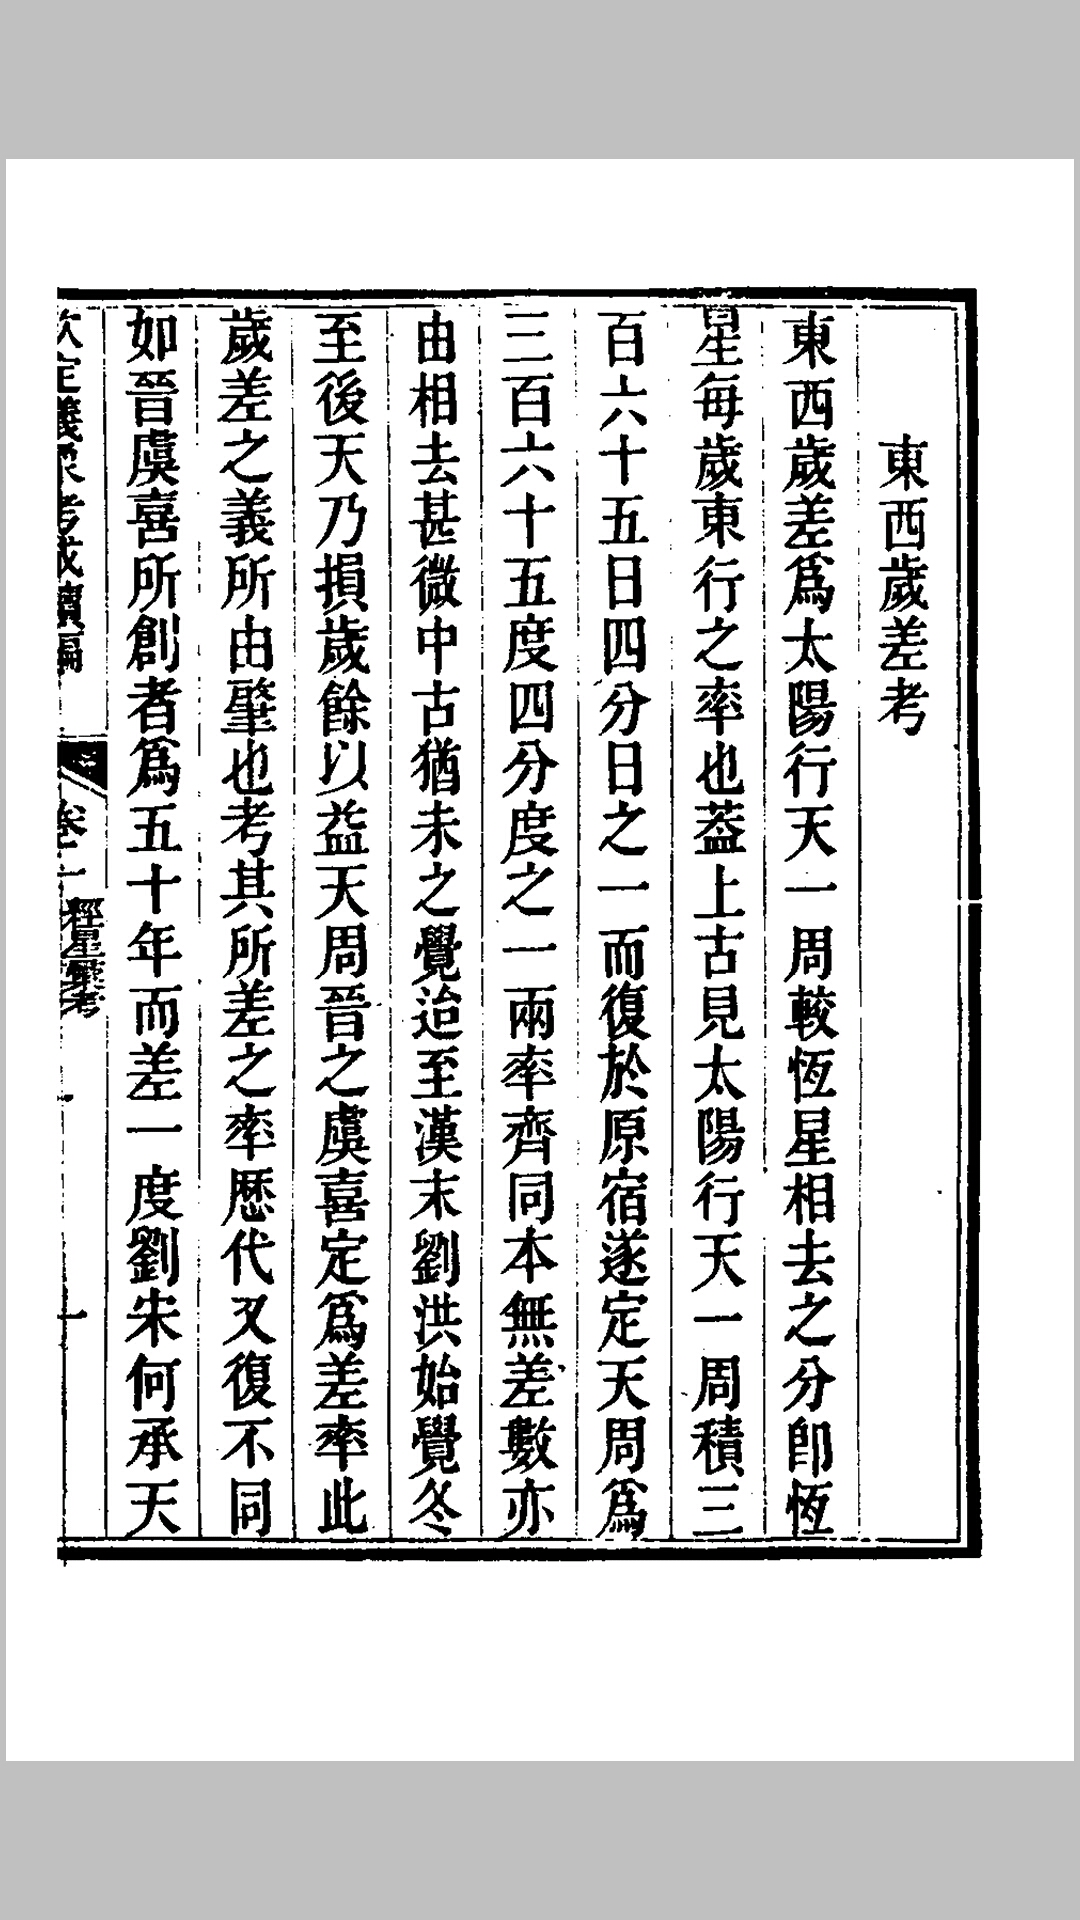 東西歲差考
東西歲差爲太陽行天一周較恆星相去之分卽恆
星每歲東行之率也葢上古見太陽行天一周積三
百六十五日四分日之一而復於原宿遂定天周爲
三百六十五度四分度之一兩率齊同本無差數亦
由相去甚微中古猶未之覺迨至漢末劉洪始覺冬
至後天乃損歲餘以益天周晉之虞喜定爲差率此
歲差之義所由肇也考其所差之率歷代又復不同
如晉虞喜所創者爲五十年而差一度劉宋何承天
欽定儀象考成續編
卷一
經星彙考
一